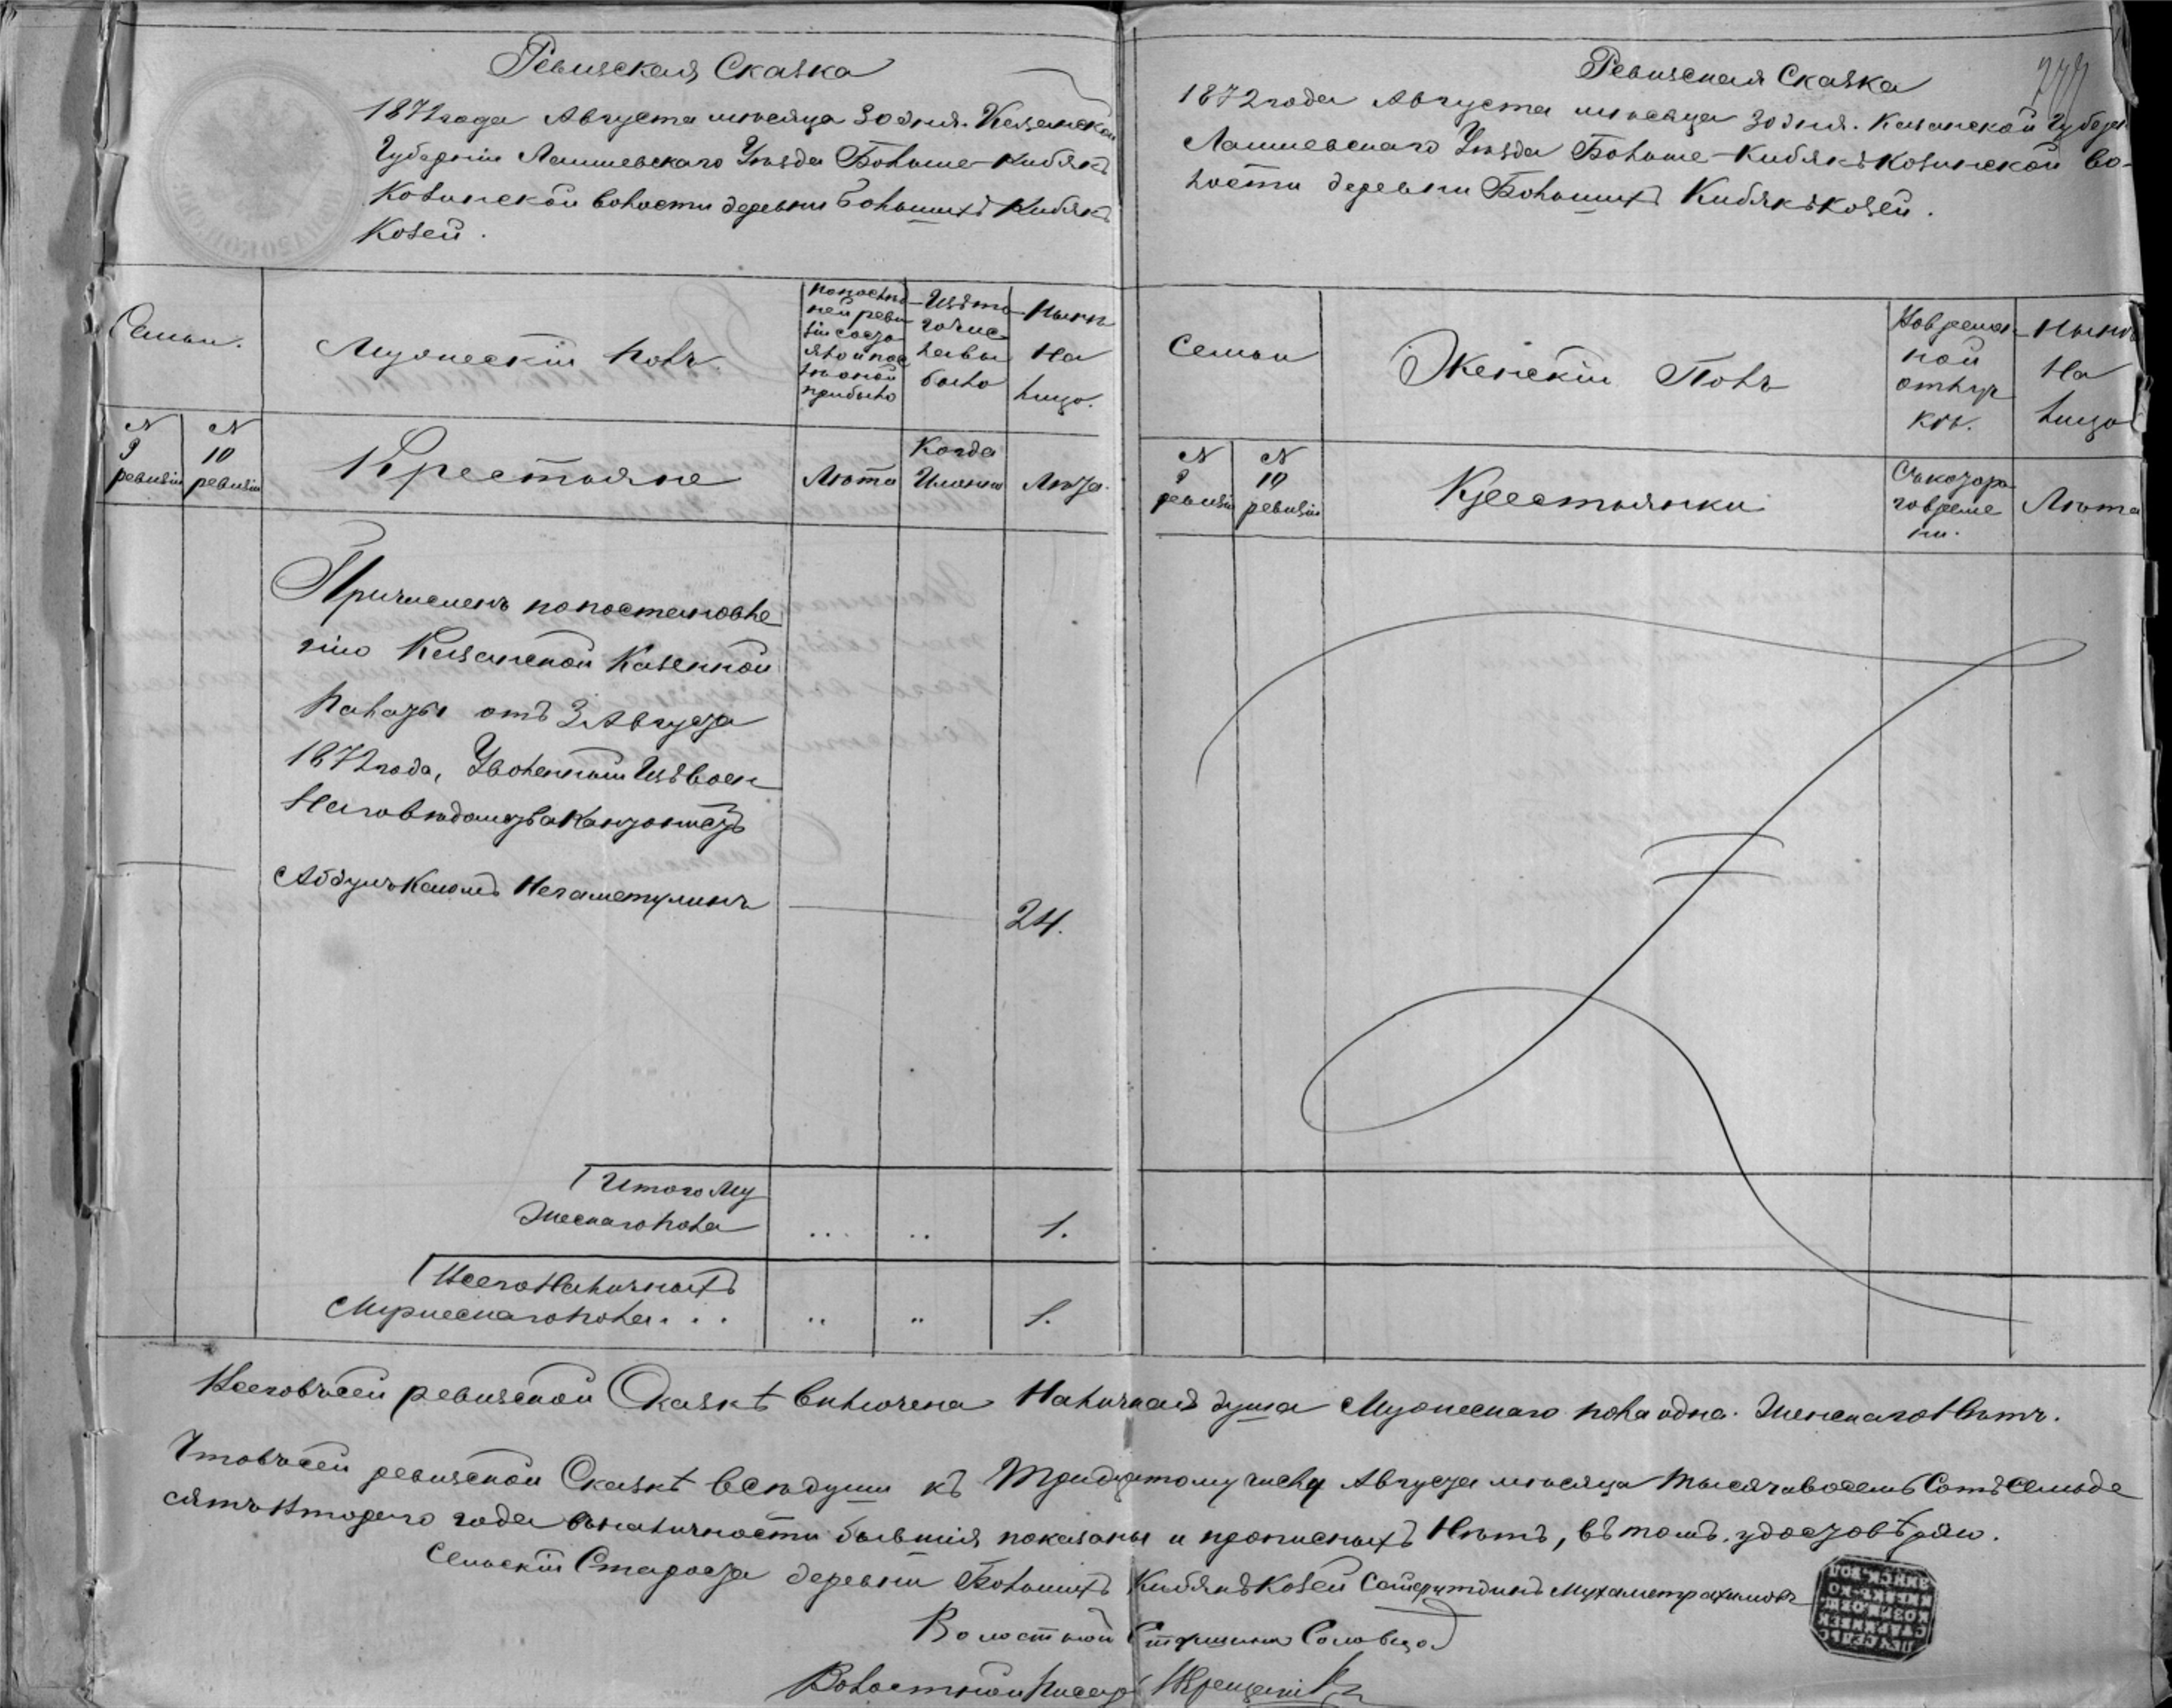 Ревизская Сказка
1872 года Августа мѣсяца 30 дня. Казанской
Губерніи Лаишевскаго Уѣзда Больше-Кибякъ
Козинской волости деревни Большихъ Кибякъ
Козей.
Семьи.
Мужескій полъ.
По послѣд
ней реви
зіи состо
яло и пос
лѣ оной
прибыло
Изъ то
го чис
ла вы
было
Нынѣ
на
лицо.
N
9
ревизіи
N
10
ревизіи
Крестьяне
Лѣта
Когда
Именно
Лѣта.
Причисленъ по постановле
нію Казанской Казенной
палаты отъ 3 Августа
1872 года, Уволенный Изъ Воен
Наго вѣдомства Кантонистъ
Абдулъ Каюмъ Негаметулинъ
24.
Итого Му
жескаго пола
... .. 1.
Всего Наличныхъ
Мужескаго пола. . .
.. .. 1.
Ревизская Сказка
277
1872 года Августа мѣсяца 30 дня. Казанской Губер
Лаишевскаго Уѣзда Больше-Кибякъ Козинской во-
лости деревни Большихъ Кибякъ Козей.
Семьи
Женскій Полъ
Во времен
ной
отлуч
кѣ.
Нынѣ
На
лицо
N
9
ревизіи
N
10
ревизіи
Крестьянки
Съ котора
го време
ни.
Лѣта
Всего въ сей ревизской Сказкѣ включена Наличная душа Мужескаго пола одна. Женскаго Нѣтъ.
Что въ сей ревизской Сказкѣ всѣ души къ Тридцатому числу Августа мѣсяца тысяча восемь Сотъ Семьде
сятъ Втораго года въ наличности бывшія показаны и прописныхъ Нѣтъ, въ томъ удостовѣряю.
Сельскій Староста деревни Большихъ Кибякъ Козей Мухаметрахимовъ
Волостной Старшина
Волостной Писарь